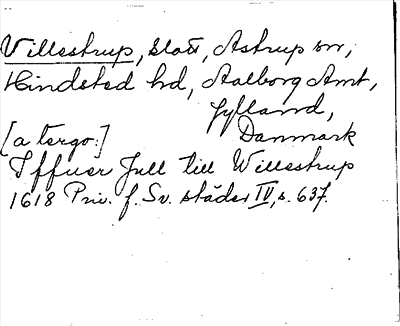 Villestrup, slott, Astrup sn,
Hindsted hd, Aalborg Amt,
Jylland,
Danmark
[a tergo:]
Iffuer Jull till Willestrup
1618 Priv. f. Sv. städer IV, s. 637.